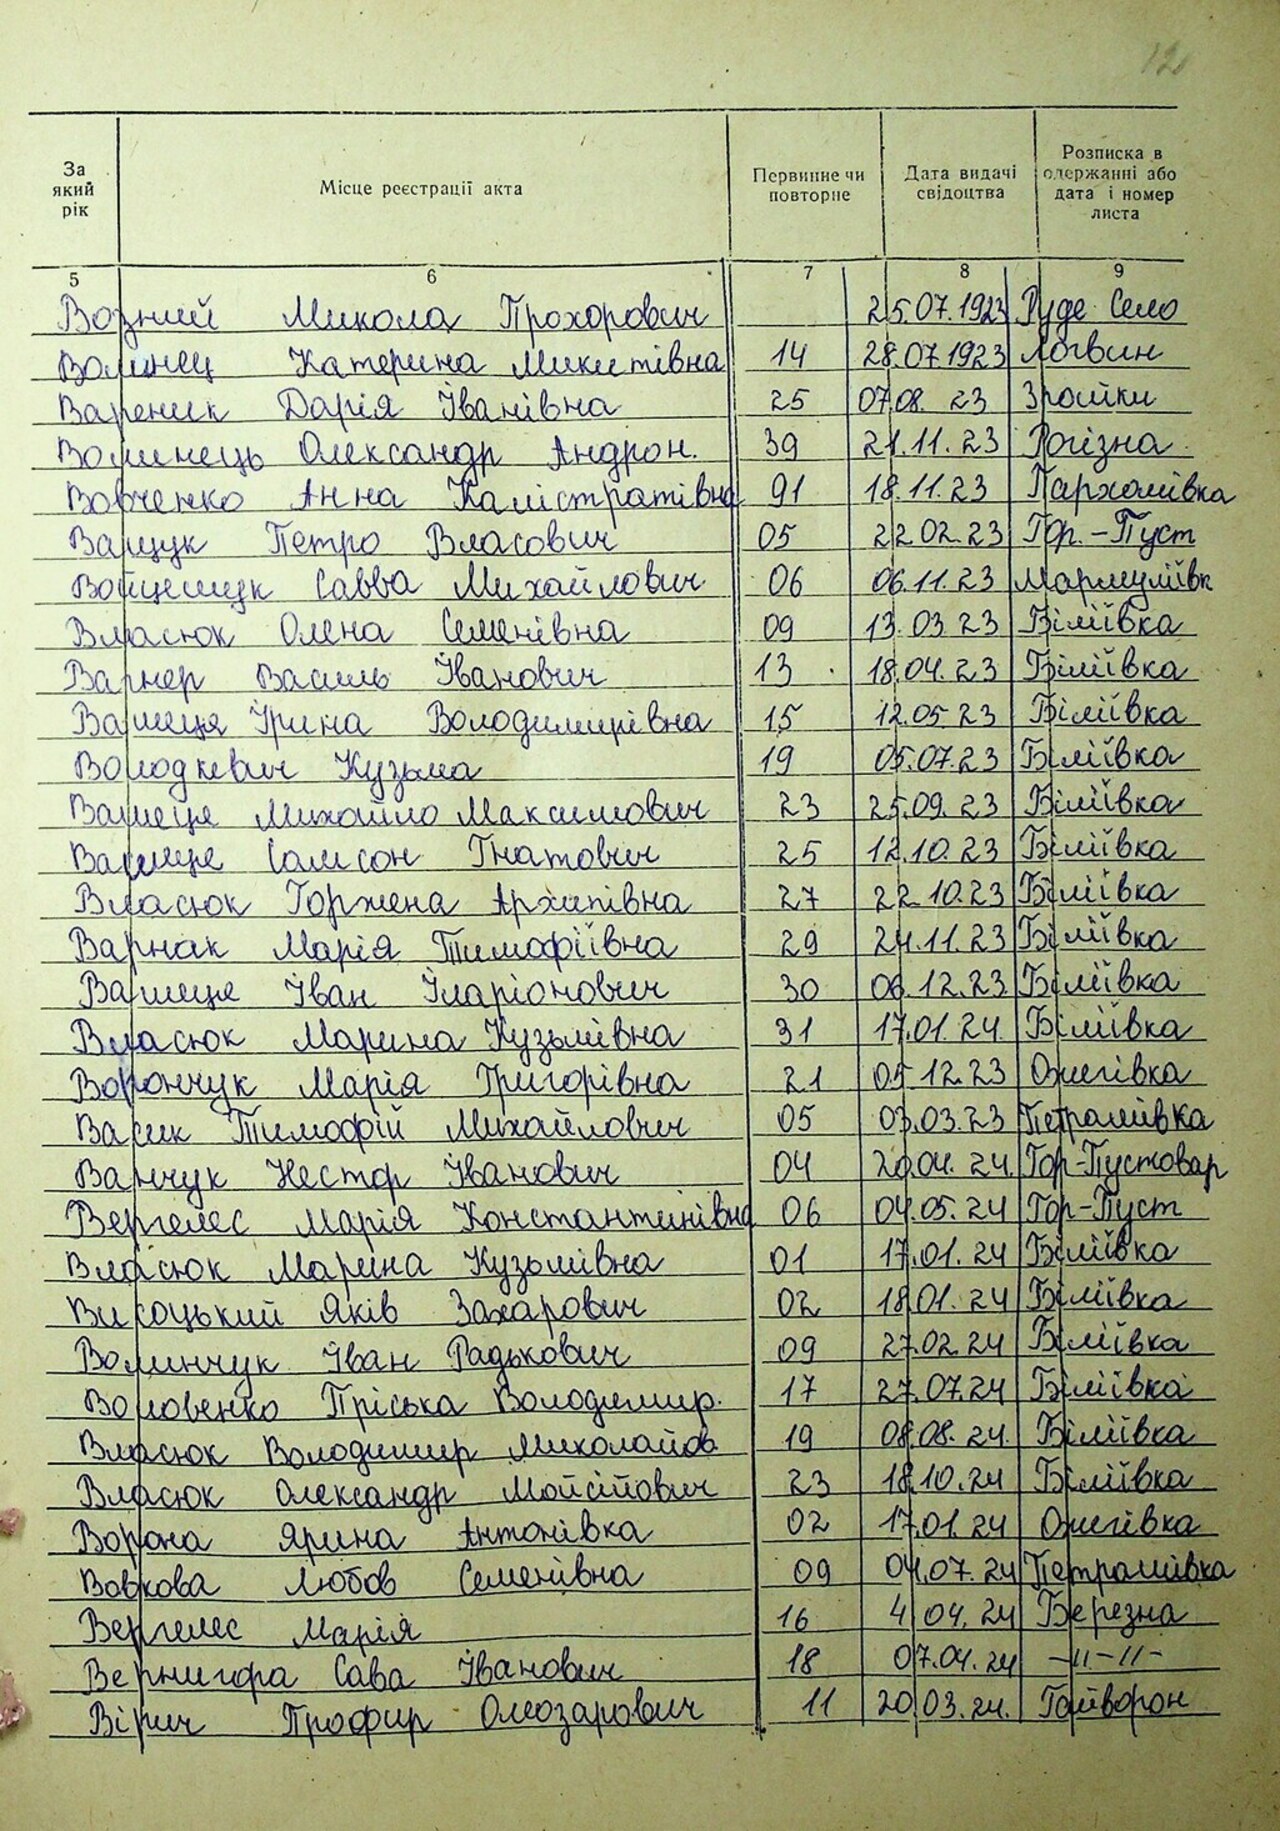 12
За який рік | Місце реєстрації акта | Первинне чи повторне | Дата видачі свідоцтва | Розписка в одержанні або дата і номер листа
5 | 6 | 7 | 8 | 9
Возний Микола Прохорович 25.07.1923 Руде Село
Волинец Катерина Микитівна 14 28.07.1923 Логвин
Вареник Дарія Іванівна 25 07.08. 23 Зрайки
Волинець Олександр Андрон. 39 21.11.23 Рогізна
Вовченко Анна Калістратівна 91 18.11.23 Пархомівка
Ващук Петро Власович 05 22.02.23 Гор.-Пуст
Войцешук Савва Михайлович 06 06.11.23 Мармулівк
Власюк Олена Семенівна 09 13.03.23 Біліївка
Варнер Василь Іванович 13 18.04.23 Біліївка
Вашеця Ірина Володимирівна 15 12.05.23 Біліївка
Володкевич Кузьма 19 05.07.23 Біліївка
Вашеце Михайло Максимович 23 25.09.23 Біліївка
Вашеце Самсон Гнатович 25 12.10.23 Біліївка
Власюк Горжена Архипівна 27 22.10.23 Біліївка
Варнак Марія Тимофіївна 29 24.11.23 Біліївка
Вашеце Іван Іларіонович 30 06.12.23 Біліївка
Власюк Марина Кузьмівна 31 17.01.24. Біліївка
Ворончук Марія Григорівна 21 05.12.23 Ожегівка
Васик Тимофій Михайлович 05 03.03.23 Петрашівка
Ванчук Нестор Іванович 04 20.04.24. Гор-Пустовар
Вергелес Марія Константинівна 06 04.05.24 Гор-Пуст
Власюк Марина Кузьмівна 01 17.01.24 Біліївка
Висоцький Яків Захарович 02 18.01.24 Біліївка
Волинчук Іван Радькович 09 27.02.24 Біліївка
Воловенко Пріська Володимир. 17 27.07.24 Біліївка
Власюк Володимир Миколайов 19 08.08.24. Біліївка
Власюк Олександр Мойсійович 23 18.10.24 Біліївка
Ворона Ярина Антонівка 02 17.01.24 Ожегівка
Вовкова Любов Семенівна 09 04.07.24 Петрашівка
Вергелес Марія 16 4.04.24 Березна
Вернигора Сава Іванович 18 07.04.24 -11-11-
Вірич Профир Олеозарович 11 20.03.24. Гайворон